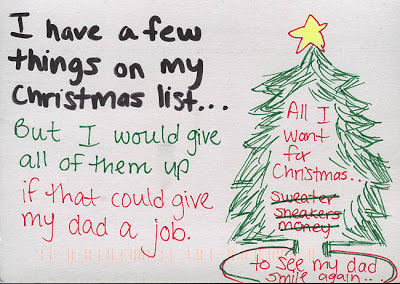 I have a few
things on my
Christmas list...
But I would give
all of them up
if that could give
my dad a job.
All I
want
for
Christmas..
sweater
sneakers
money
to see my dad
smile again...